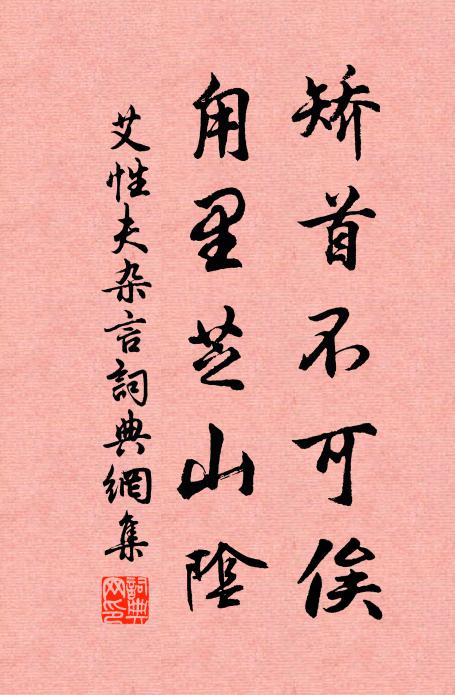 矫首不可俟
角里芝山陰
艾性夫杂言詞典網集
詞典
网印